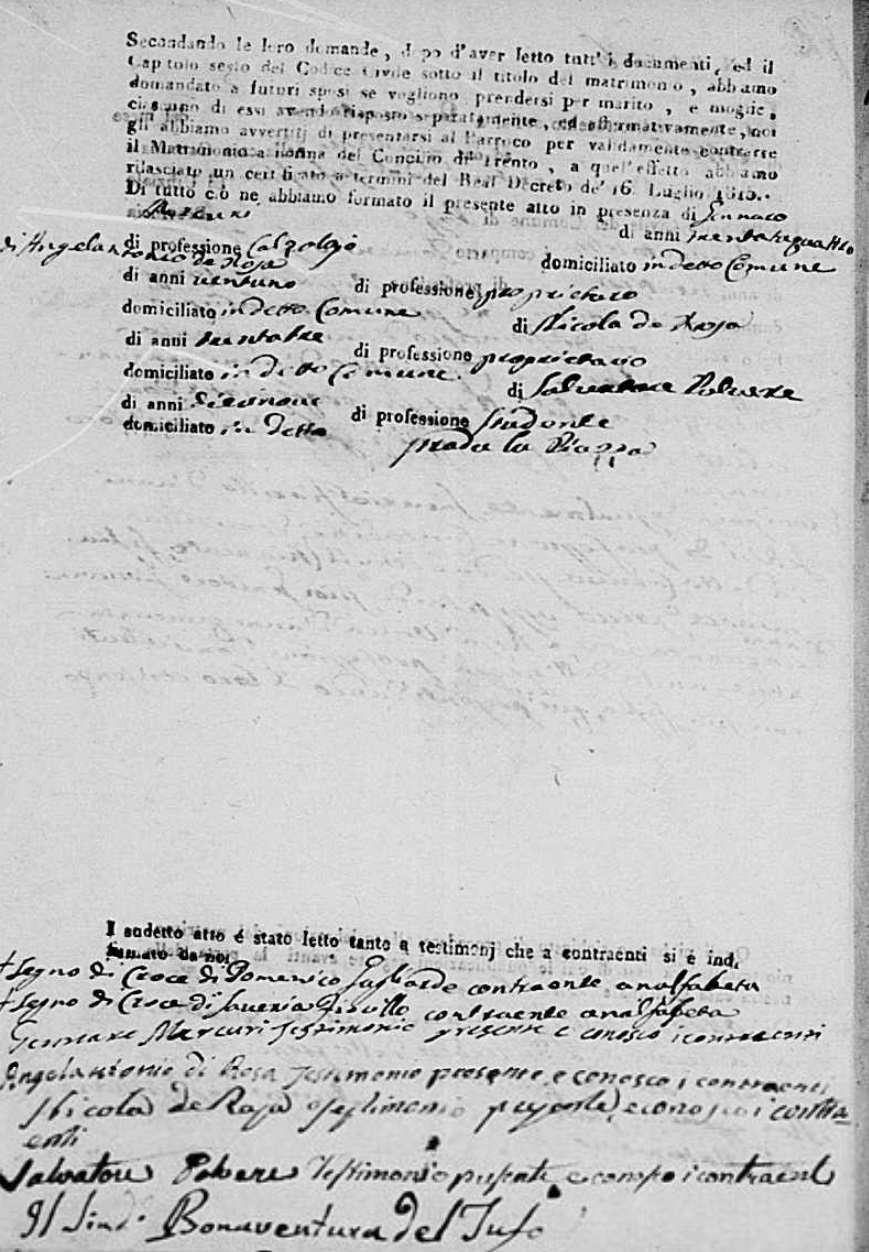 Secondando le loro domande, dopo d'aver letto tutt' i documenti, ed il
Capitolo sesto del Codice Civile sotto il titolo del matrimonio, abbiamo
domandato a futuri sposi se vogliono prendersi per marito, e moglie,
ciascuno di essi avendo risposto separatamente, ed affirmativamente, noi
gli abbiamo avvertiti di presentarsi al Parroco per validamente contrarre
il Matrimonio a norma del Concilio di Trento, a quel'effetto abbiamo
rilasciato un certificato a termini del Real Decreto de' 16. Luglio 1815.
Di tutto ciò ne abbiamo formato il presente atto in presenza di Gennaro
Mercuri di anni trentaquattro
di professione Calzolajo domiciliato in detto Comune
di Angelantonio de Rosa
di anni ventuno di professione proprietario
domiciliato in detto Comune di Nicola de Rosa
di anni trentatre di professione proprietario
domiciliato in detto Comune di Salvatore Polvere
di anni diecinove di professione studente
domiciliato in detto
strada la Piazza
I sudetto atto é stato letto tanto a testimonj che a contraenti si é ind.
firmato da noi
+ Segno di Croce di Domenico Gagliarde contraente analfabeta
+ Segno di Croce di Saveria contraente analfabeta
Gennaro Mercuri testimonio presente e conosco i contraenti
Angelantonio di Rosa testimonio presente, e conosco i contraenti
Nicola de Rosa testimonio presente, e conosco i contra=
enti
Salvatore Polvere Testimonio presente e conosco i contraenti
Il Sind. Bonaventura del Tufo